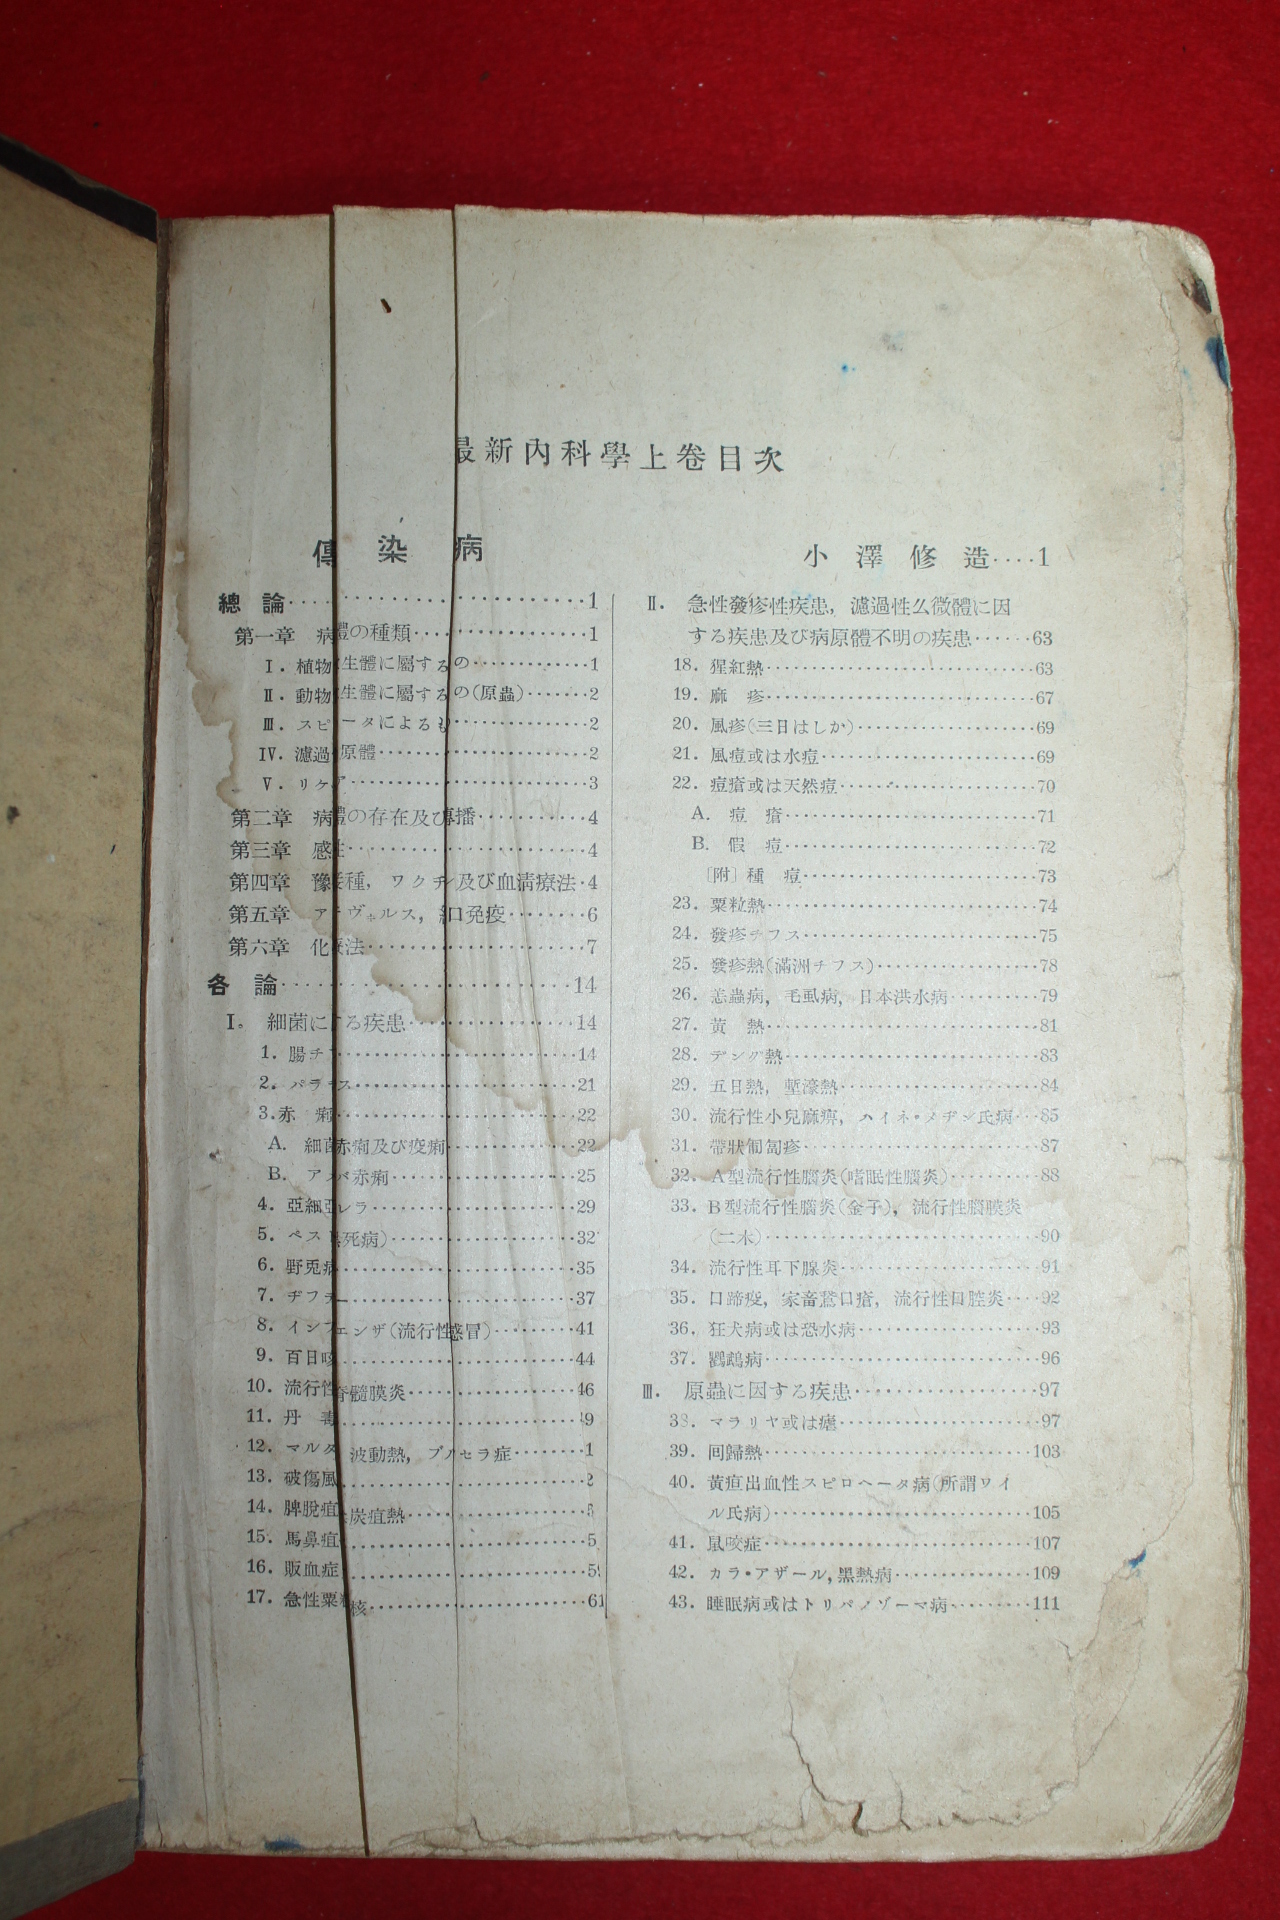 最新內科學上卷目次
傳染病
小澤修造····1
總論····························1
第一章 病體の種類··················1
I. 植物生體に屬するの·············1
II. 動物生體に屬するの(原蟲)·······2
III. スピータによるも···············2
IV. 濾過原體·······················2
V. リケ··························3
第二章 病體の存在及び傳播···········4
第三章 感性························4
第四章 豫接種, ワクチン及び血淸療法·4
第五章 ········6
第六章 化療法······················7
各論····························14
I. 細菌にする疾患················14
1. 腸チ·························14
2. パラチス·····················21
3. 赤痢·························22
A. 細菌赤痢及び疫痢·············22
B. アバ赤痢····················25
4. 亞細亞レラ···················29
5. ペス死病)····················32
6. 野兎病·······················35
7. ヂフテー·····················37
8. インフエンザ(流行性感冒)·········41
9. 百日咳·······················44
10. 流行性脊髓膜炎················46
11. 丹毒························9
12. マルタ波動熱, ブルセラ症········1
13. 破傷風······················2
14. 脾脫疽炭疽熱··················
15. 馬鼻疽······················5
16. 敗血症······················5
17. 急性粟核····················61
II. 急性發疹性疾患, 濾過性么微體に因
する疾患及び病原體不明の疾患······63
18. 猩紅熱·······················63
19. 麻疹·························67
20. 風疹(三日はしか)···············69
21. 風痘或は水痘··················69
22. 痘瘡或は天然痘················70
A. 痘瘡·························71
B. 假痘·························72
〔附〕種痘·······················73
23. 粟粒熱·······················74
24. 發疹チフス····················75
25. 發疹熱(滿洲チフス)·············78
26. 恙蟲病, 毛虱病, 日本洪水病·······79
27. 黃熱·························81
28. デング熱·····················83
29. 五日熱, 塹濠熱················84
30. 流行性小兒麻痹, ハイネ・メヂン氏病···85
31. 帶狀匍匐疹···················87
32. A型流行性腦炎(嗜眠性腦炎)·······88
33. B型流行性腦炎(金子), 流行性腦膜炎
(二木)··························90
34. 流行性耳下腺炎················91
35. 口蹄疫, 家畜鵞口瘡, 流行性口腔炎····92
36. 狂犬病或は恐水病··············93
37. 鸚鵡病·······················96
III. 原蟲に因する疾患·············97
38. マラリヤ或は瘧················97
39. 回歸熱·······················103
40. 黃疸出血性スピロヘータ病(所謂ワイ
ル氏病)·························105
41. 鼠咬症·······················107
42. カラ・アザール, 黑熱病···········109
43. 睡眠病或はトリパノゾーマ病·······111